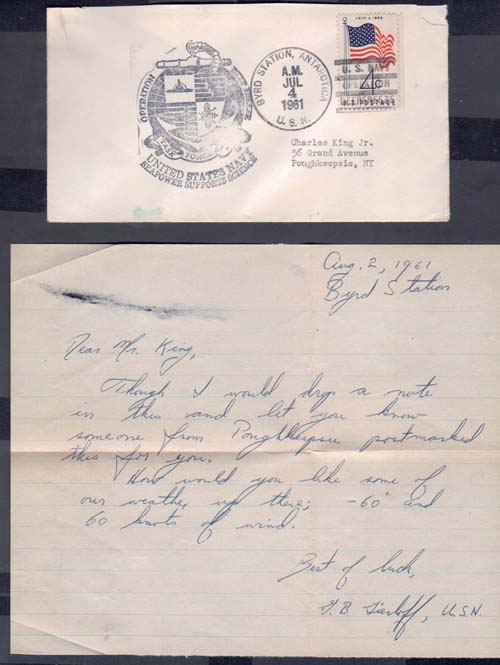 OPERATION
TASK FORCE
UNITED STATES NAVY
SEAPOWER SUPPORTS SCIENCE
BYRD STATION, ANTARCTICA
A.M.
JUL
4
1961
U. S. N.
JULY 4, 1960
U. S. NAVY
OPERATION
4¢
U.S. POSTAGE
Charles King Jr.
56 Grand Avenue
Poughkeepsie, NY
Aug. 2, 1961
Byrd Station
Dear Mr. King,
Though I would drop a note
in this and let you know
someone from Poughkeepsie postmarked
this for you.
How would you like some of
our weather up there; -60° and
60 knots of wind.
Best of luck,
B. U.S.N.